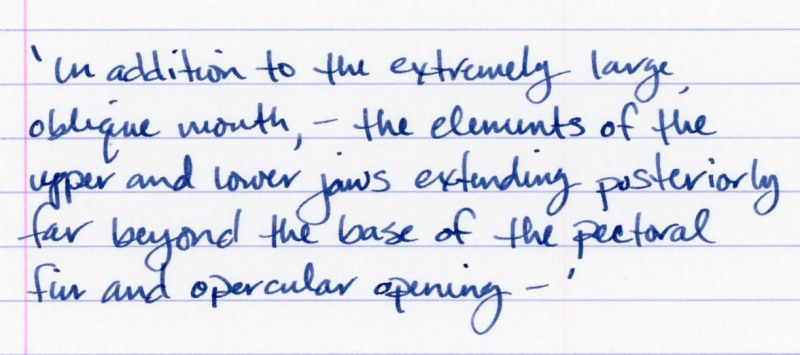 'In addition to the extremely large,
oblique mouth, – the elements of the
upper and lower jaws extending posteriorly
far beyond the base of the pectoral
fin and opercular opening – '